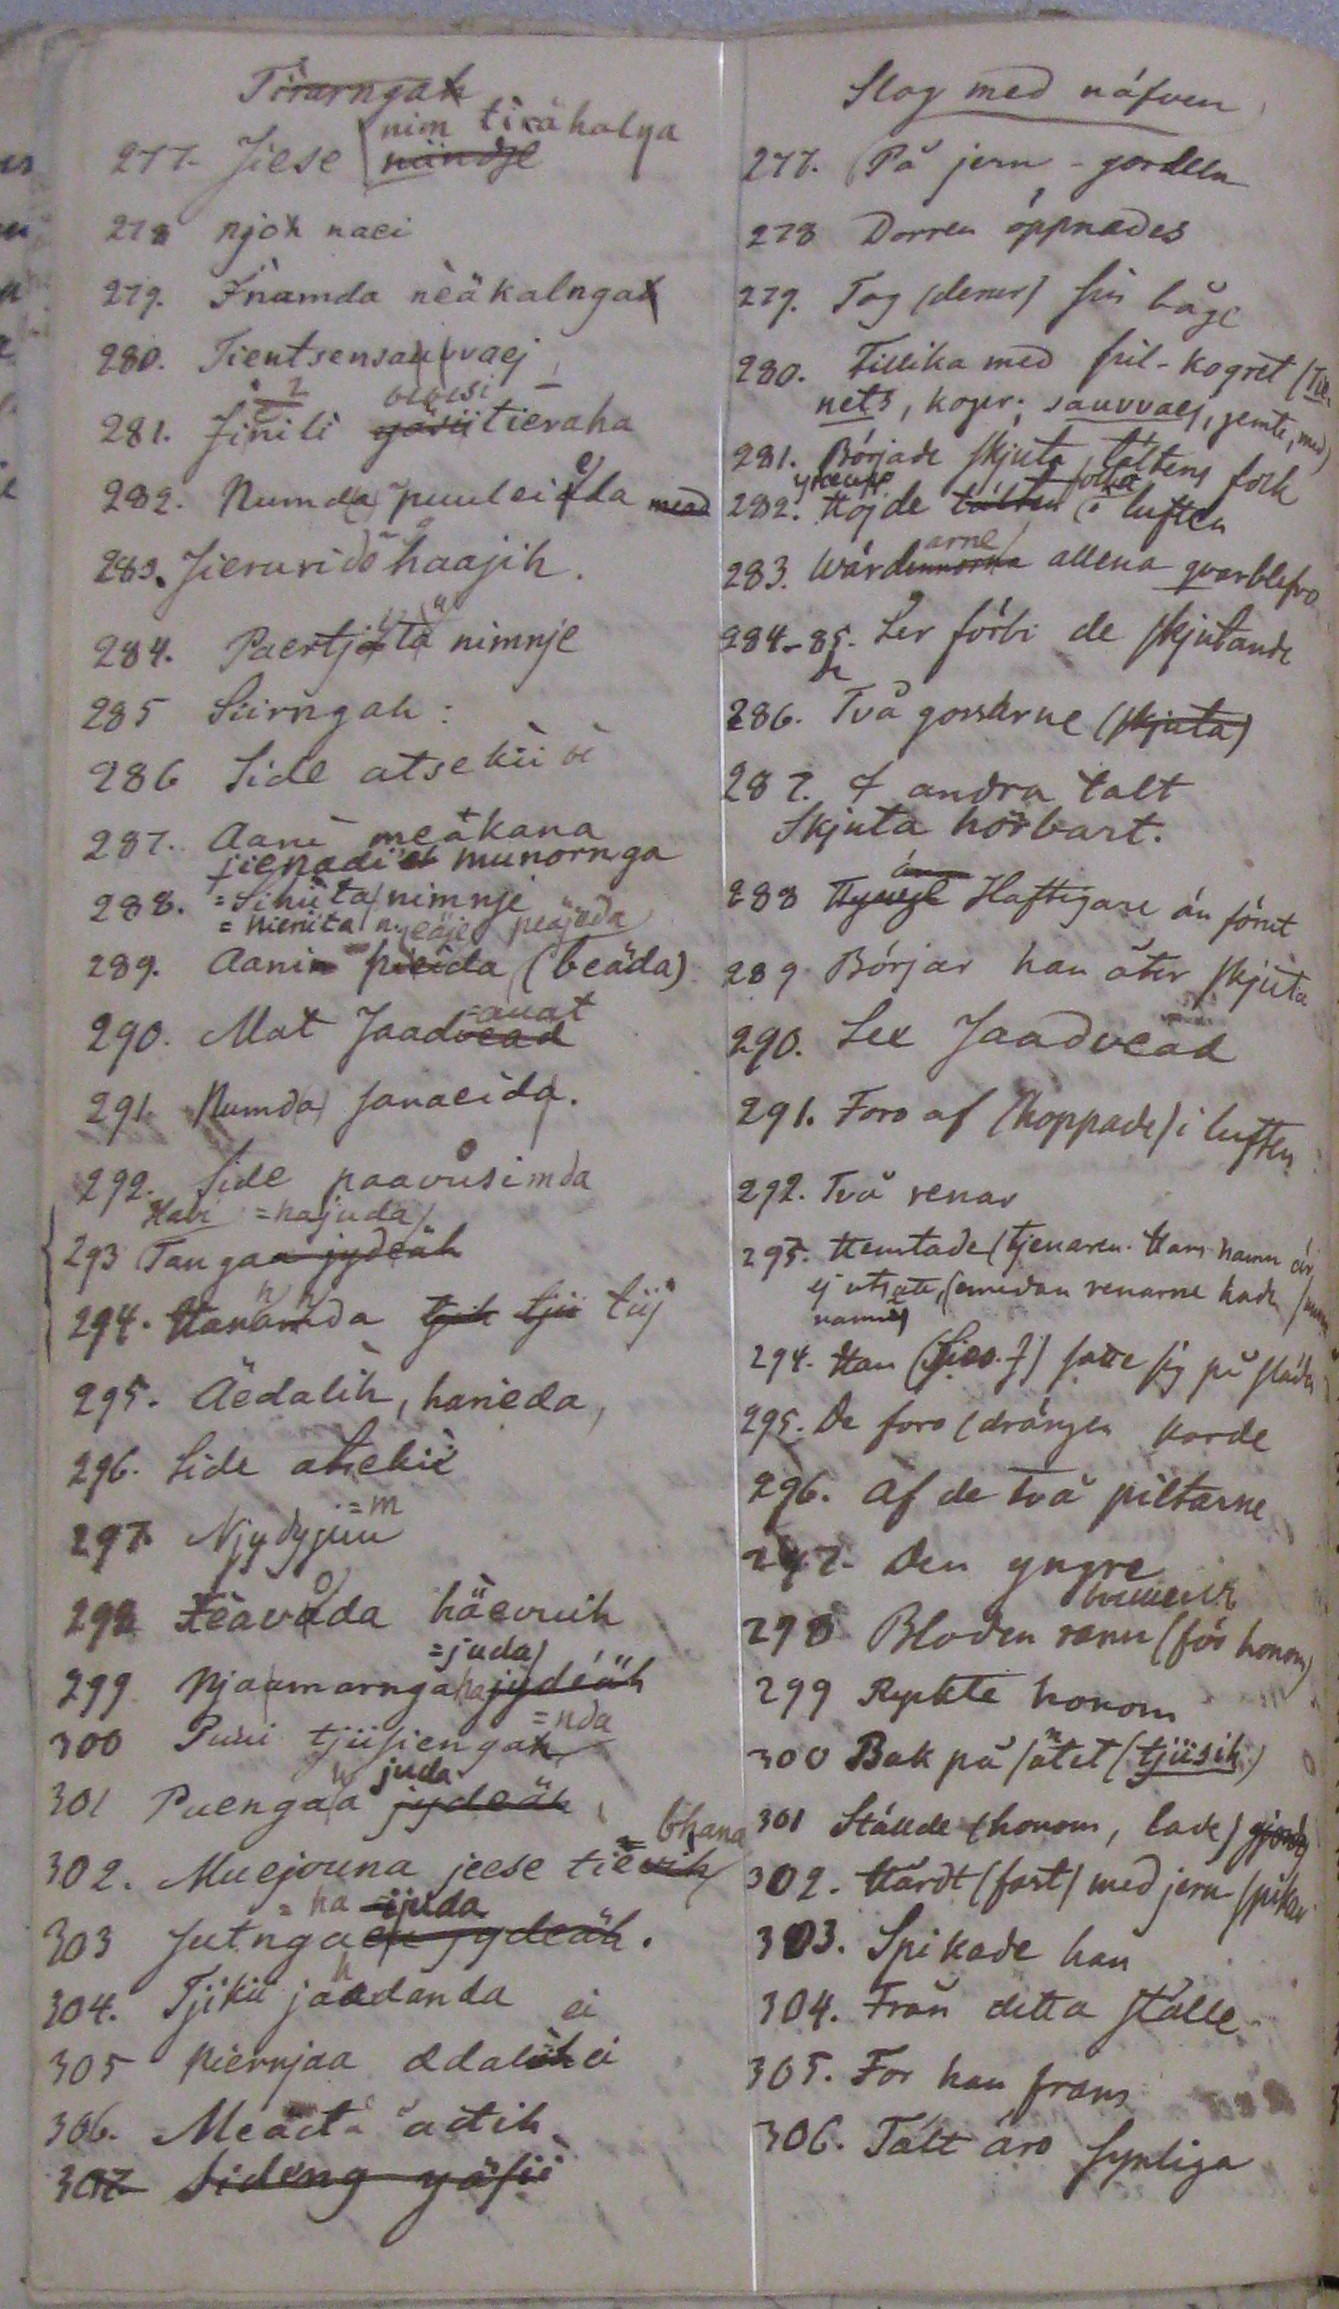 Tirarngak
nim tirähalya
277. Jiese niindje
278 njoh naei
279. Inamda nèäkalngak
280. Tientsensauvvaej
281. Jinili tieraha
282. Numda puuleida
283. Jieruridö haajih.
284. Paertjäta nimnje
285 Siirngah:
286 Side atsekii
287. Aani meäkana
jienadi munornga
288. =Sihiita nimnje
= nieriita n.
289. Aani pieida (beäda)
=auat
290. Mat Jaadvead
291. Numda sanaeida.
292. Side paavusimda
Habi =hajuda
293 Tangaa jydeäh
294. Hananda tjih tjii tiij
295. Äedalih, hanieda,
296. Side atsekii
=m
297. Njydyjuu
298 Xèavada häevuih
=juda
299 Njaamarnga jydéäh
=nda
300 Puui tjiisiengah
juda
301 Puengaa jydeäh
bhana
302. Muejouna jeese
= ha =ijuda
303 Jutngaeu jydeäh.
304. Tjikii jaadanda
ei
305 Niernjaa ädalih ei
306. Meäeta aetih
307 Sideng yäsii
Slog med näfven
277. På jern-gördeln
278 Dörren öppnades
279. Tog (derur) sin båge
280. Tillika med pil-kogret (Tie
nets, koger; sauvvaej, jemte, med)
281. Började skjuta, tältens folk
282. Höjde i luften
arne
283. Wärdinnorna allena qvarblefvo
284-85. Ser förbi de skjutande
de
286. Två gossarne (skjuta)
287. I andra tält
Skjuta hörbart.
288 Häftigare än förut
289 Börjar han åter skjuta
290. Sex Jaadvead
291. Foro af (hoppade) i luften
292. Två renar
293. Hemtade (tjenaren. Hans namn är
ej utsatt, emedan renarne hade
namn)
294. Han satte sig på släden
295. De foro (drängen körde
296. Af de två piltarne
297. Den yngre
298 Bloden rann (för honom)
299 Ryckte honom
300 Bak på sätet (tjiisih.)
301 Ställde (honom, lade)
302. Hårdt (fast) med jern-spikar
303. Spikade han
304. Från detta ställe
305. For han fram
306. Tält äro synliga